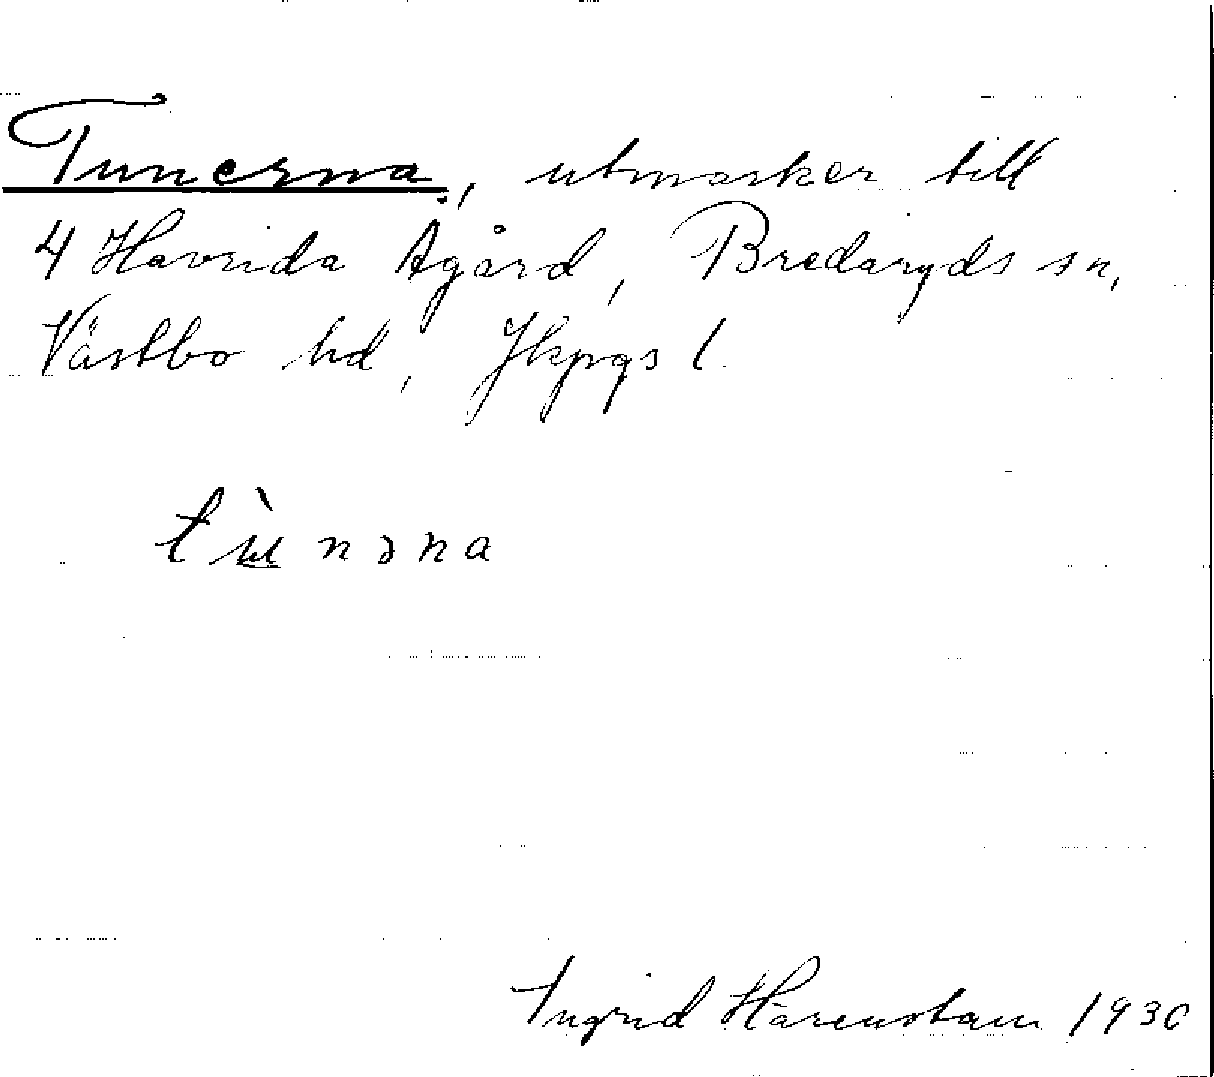 Tunerna, utmarker till
4 Havrida Ågård, Bredaryds sn,
Västbo hd, Jkpgs l.
tùnəna
Ingrid Härenstam 1930